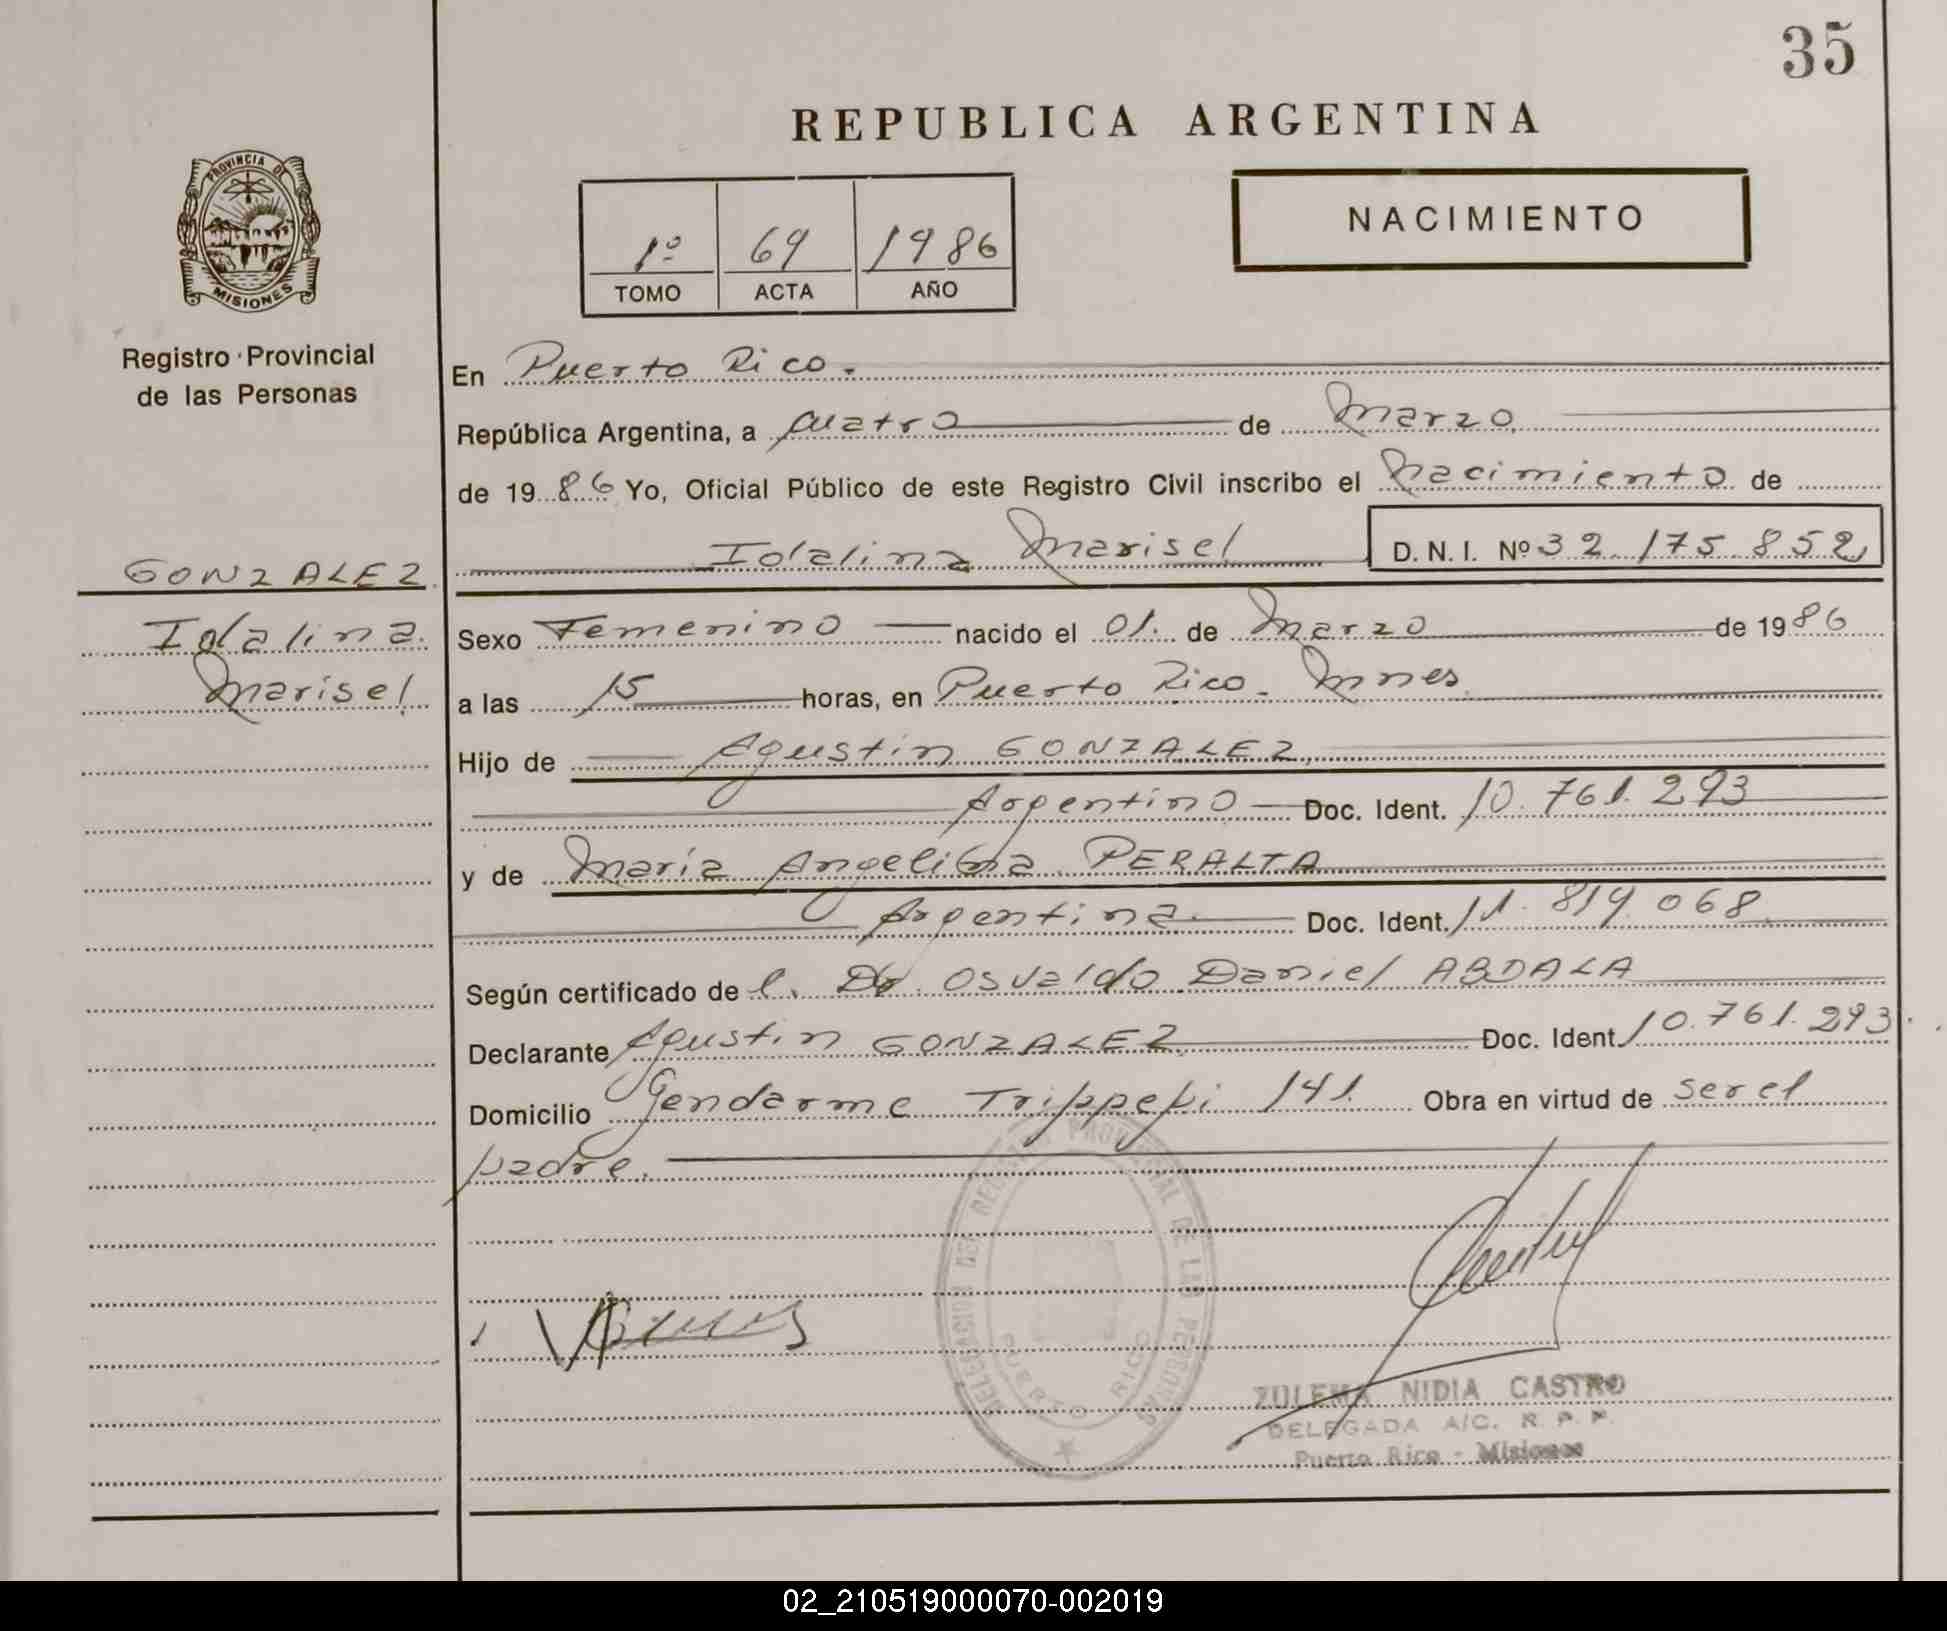 35
REPUBLICA ARGENTINA
PROVINCIA DE
MISIONES
Registro Provincial
de las Personas
1º 69 1986
TOMO ACTA AÑO
NACIMIENTO
En Puerto Rico.
República Argentina, a cuatro de Marzo
de 19 86 Yo, Oficial Público de este Registro Civil inscribo el Nacimiento de
Idalina Marisel D. N. I. Nº 32.175.852
GONZALEZ
Idalina
Marisel
Sexo Femenino nacido el 01. de Marzo de 19 86
a las 15 horas, en Puerto Rico - Mnes.
Hijo de Agustin GONZALEZ
Argentino Doc. Ident. 10.761.293
y de María Angelina PERALTA
Argentina. Doc. Ident. 11.819.068
Según certificado de l. Dr. Osvaldo Daniel ABDALA
Declarante Agustin GONZALEZ Doc. Ident. 10.761.293
Domicilio Gendarme Trippepi 141. Obra en virtud de ser el
padre.
DELEGACION DEL REGISTRO PROVINCIAL DE LAS PERSONAS
PUERTO RICO
ZULEMA NIDIA CASTRO
DELEGADA A/C. R. P. P.
Puerto Rico - Misiones
02_210519000070-002019